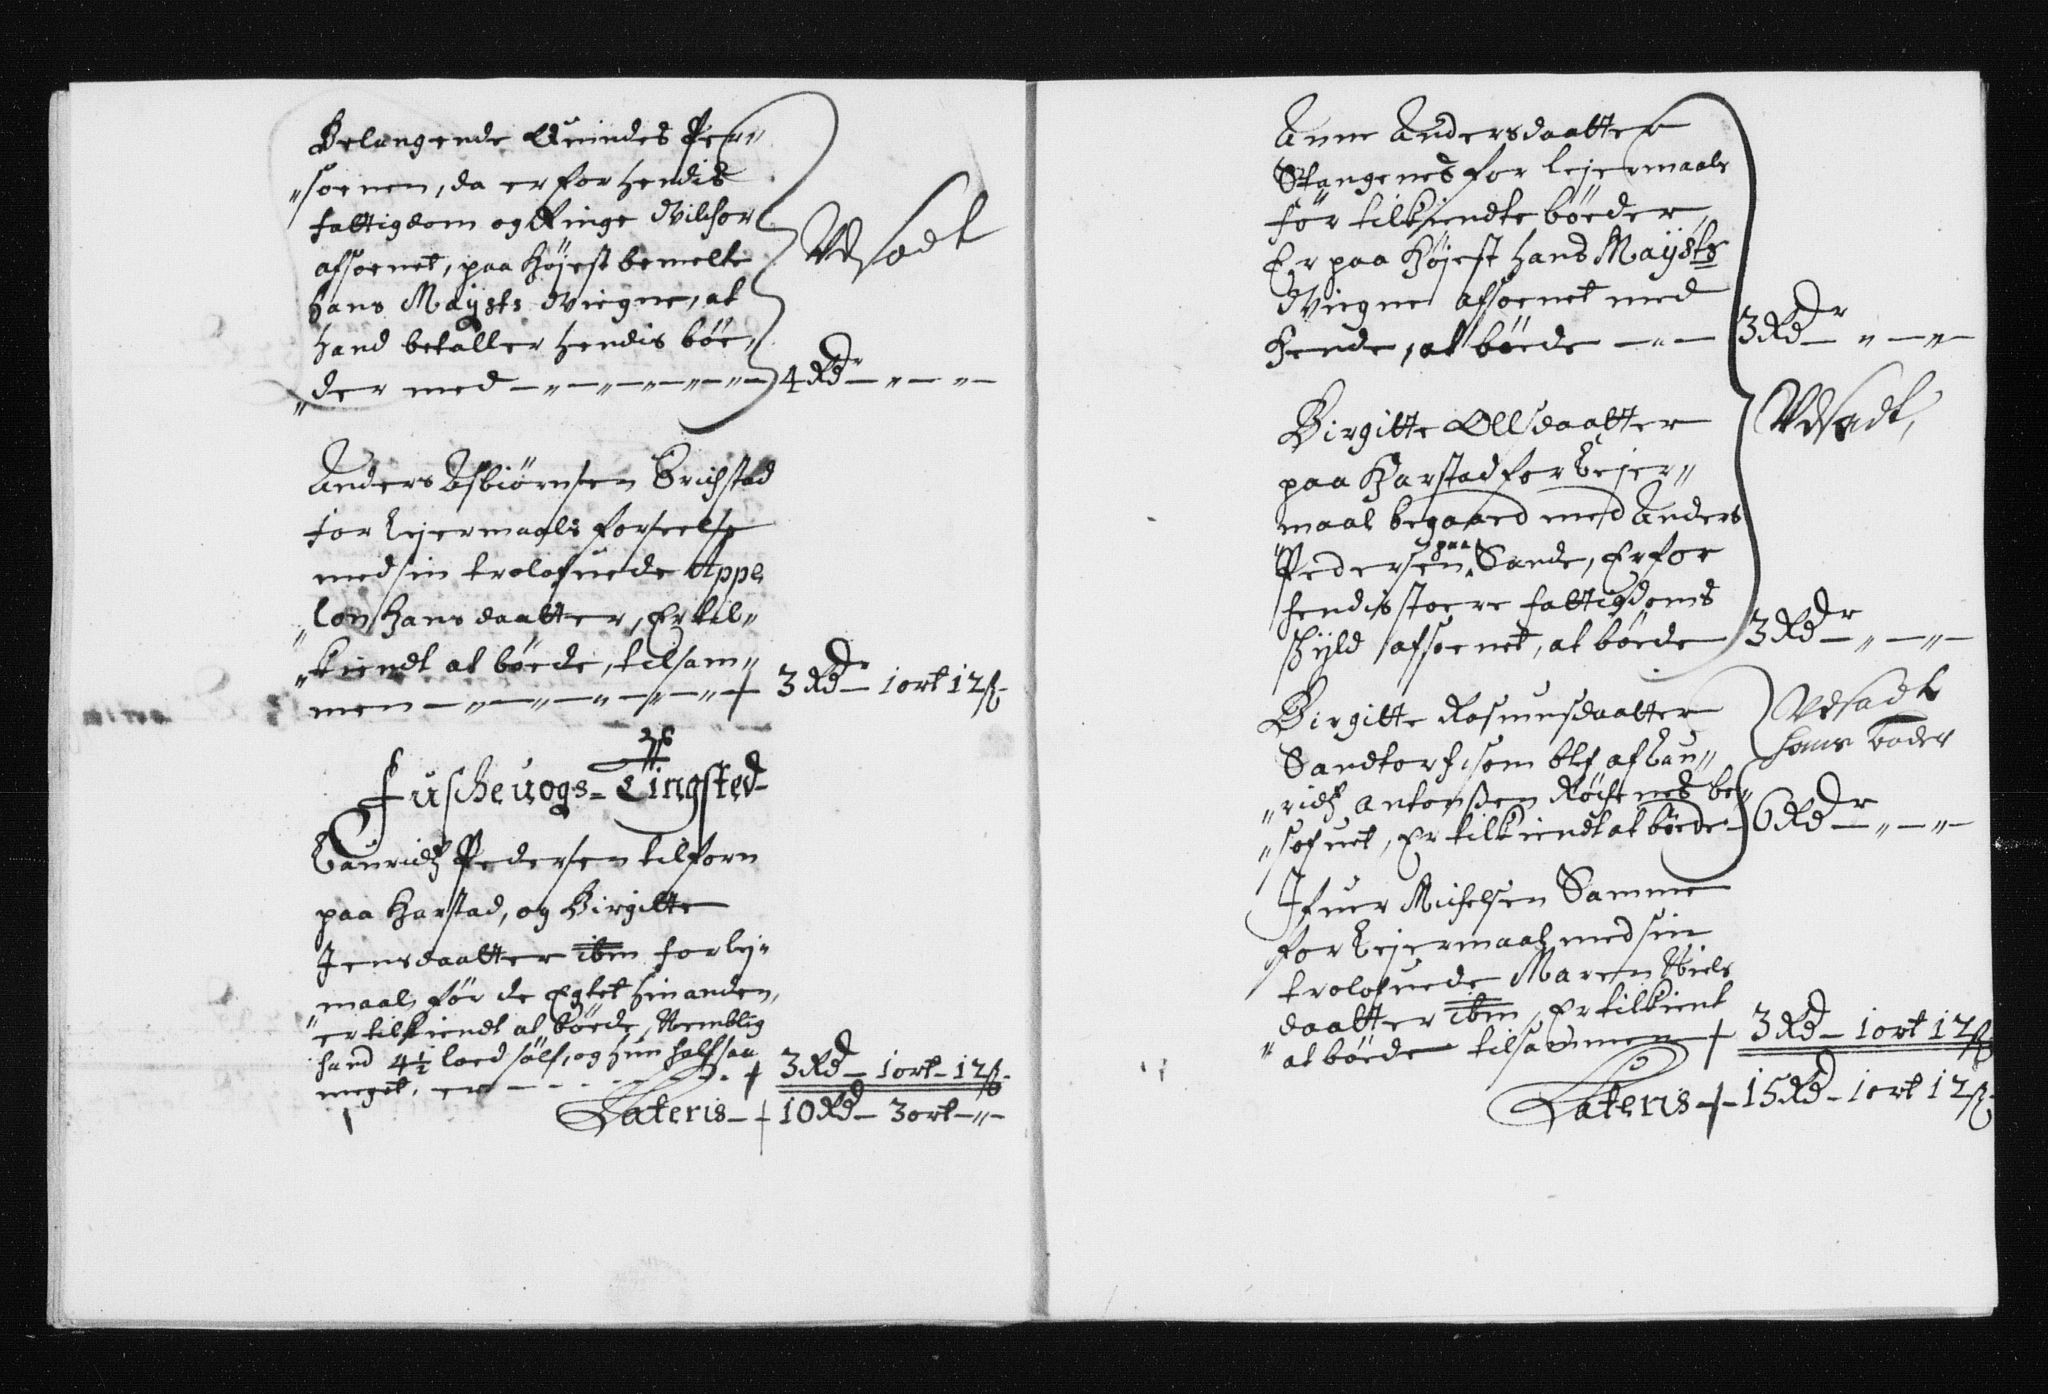 Belangende Quindes Per„
„soenen, da er for hendis
fattigdom og Ringe Vilchor
afsoenet, paa Høyest bemelte
Hans Maysts Vegne, at
hand betaller hendis bøe,
„der med — 4 Rdr — „ — „ —
Vdsadt
Anders Asbiørnsen Erichstad
for Leyermaals forseelse
med sin trolofuede Appe,
„lon Hansdaatter, Er til„
„kiendt at bøede, tilsam„
men — 3 Rdr — 1 ort 12 ß
Fuscheuogs Tingsted
Lauridz Pedersen tilforn
paa Harstad, og Birgitte
Jensdaatter ibm for lej„
„maal, før de Egtet hinanden,
er tilkiendt at bøede, Nemblig
hand 4½ loed sølf, og hun half saa
meget, er — 3 Rd — 1 ort — 12 ß
Lateris — 10 Rd — 3 ort — „ —
Anne Andersdaatter
Stangenes for Lejermaals
før tilkiendte bøeder,
Er paa Høyest Hans Maysts
Vegne afsoenet med
Hende, at bøede — „ — 3 Rdr — „ — „ —
Vdsadt,
Birgitte Ollsdaatter
paa Harstad for Lejer„
maal begaaed med Anders
Pedersen paa Sande, Er for
hendis stoere fattigdoms
schyld afsoenet, at bøede 3 Rdr — „ — „ —
Birgitte Rasmusdaatter
Sandtorf, som blef af Lau„
„ridz Antonßen Røchenes be„
„sofuet, Er tilkiendt at bøede — 6 Rdr — „ — „ —
Vdsadt
hans bøder
Ifuer Michelsen Samme
for Lejermaal med sin
trolofuede Maren Niels
„daatter ibm, Er tilkient
at bøede tilsammen — 3 Rd — 1 ort 12 ß
Lateris — 15 Rd — 1 ort 12 ß